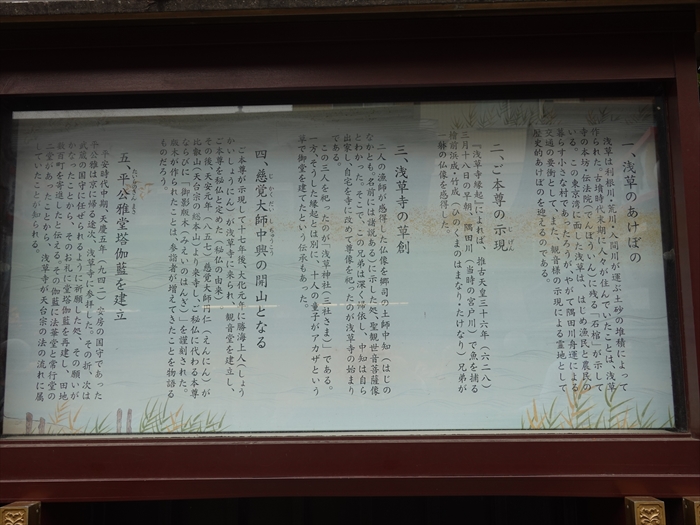 一、浅草のあけぼの
浅草は利根川・荒川・入間川が運ぶ土砂の堆積によって
作られた。古墳時代末期に人々が住んでいたことは、浅草
寺の本坊・伝法院（でんぼういん）に残る「石棺」が示して
いる。この東京湾に面した浅草は、はじめ漁民と農民の
暮らす小さな村であったろうが、やがて隅田川舟運による
交通の要衝として、また、観音様の示現による霊地として
歴史的あけぼのを迎えるのである。
二、ご本尊の示現
じげん
『浅草寺縁起』によれば、推古天皇三十六年（六二八）
三月十八日の早朝、隅田川（当時の宮戸川）で魚を捕る
檜前浜成・竹成（ひのくまのはまなり・たけなり）兄弟が
一躰の仏像を感得した。
三、浅草寺の草創
二人の漁師が感得した仏像を郷司の土師中知（はじの
なかとも。名前には諸説ある）に示した処、聖観世音菩薩像
とわかった。そこで、この兄弟は深く帰依し、中知は自ら
出家し、自宅を寺に改めて尊像を祀ったのが浅草寺の始まり
である。
この三人を祀ったのが「浅草神社（三社さま）」である。
一方、そうした縁起とは別に、十人の童子がアカザという
草で御堂を建てたという伝承もあった。
四、慈覚大師中興の開山となる
じかくだいし ちゅうこう
ご本尊が示現して十七年後、大化元年に勝海上人（しょう
かいしょうにん）が浅草寺に来られ、観音堂を建立し、
ご本尊を秘仏と定めた（秘仏の由来）
その後、天安元年（八五七）慈覚大師円仁（えんにん）が
比叡山（当寺の総本山）より来寺、ご秘仏に代わる本尊
ならびに「御影版木（みえいのはんぎ）」を謹刻された。
版木が作られたことは、参詣者が増えてきたことを物語る
ものだろう。
五、平公雅堂塔伽藍を建立
たいらのきんまさ
平安時代中期、天慶五年（九四二）安房の国守であった
平公雅は京に帰る途次、浅草寺に参拝した。その折、次は
武蔵の国守に任ぜられるように祈願した処、その願いが
かなったことから、そのお礼に堂塔伽藍を再建し、田地
数百町を寄進したと伝える。その伽藍に法華堂と常行堂の
二堂があったことから、浅草寺が天台宗の法の流れに属
していたことが知られる。